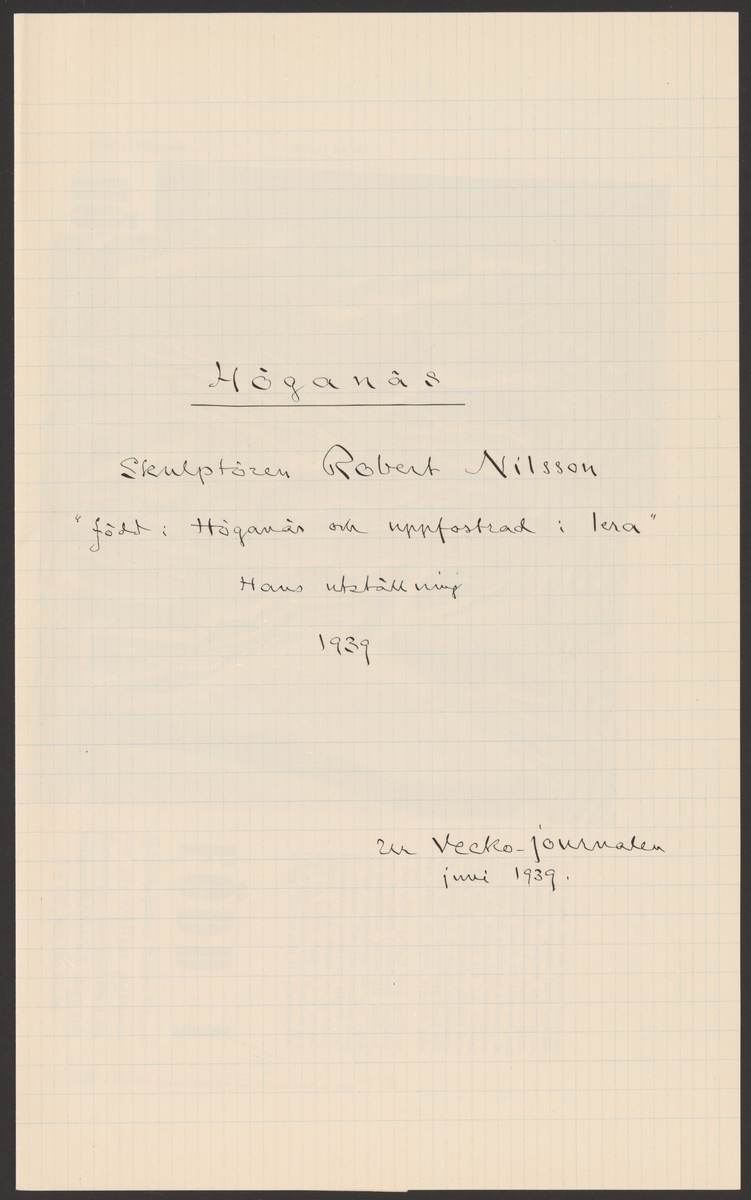 Höganäs
Skulptören Robert Nilsson
"född i Höganäs och uppfostrad i lera"
Hans utställning
1939
ur Vecko-journalen
juni 1939.